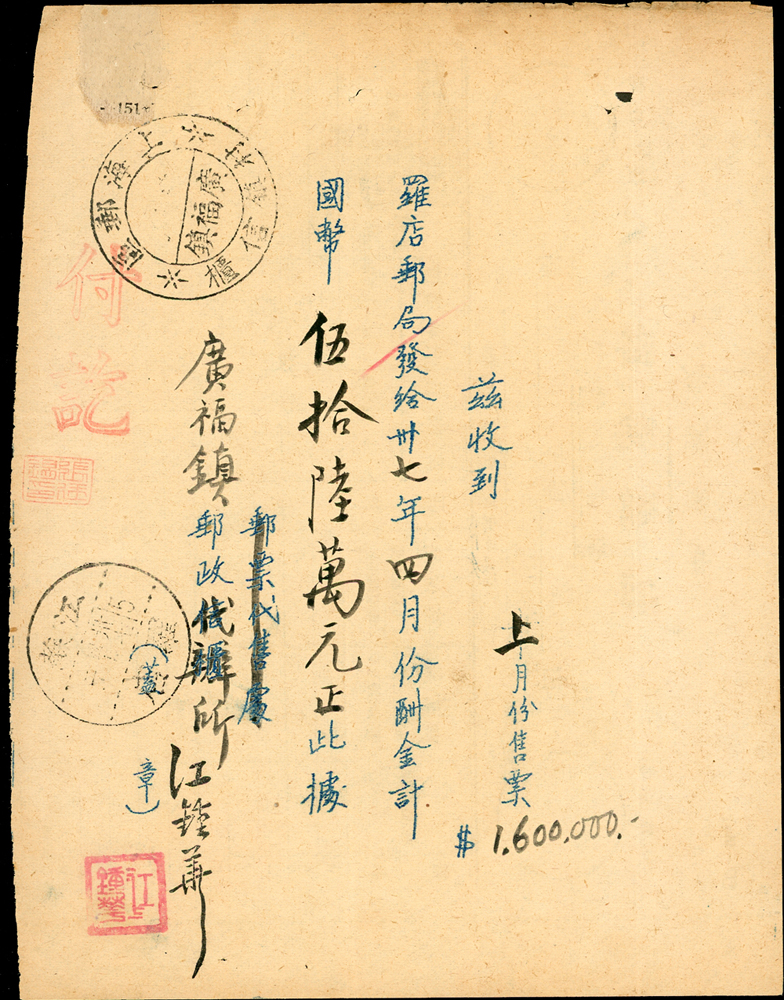 上月份售票
$ 1,600,000.-
茲收到
羅店郵局發給卅七年四月份酬金計
國幣伍拾陸萬元正此據
郵票代售處
廣福鎮郵政代辦所江鍾華
(蓋章)
151
上海郵局
村鎮信櫃
廣福鎮
付訖
江蘇